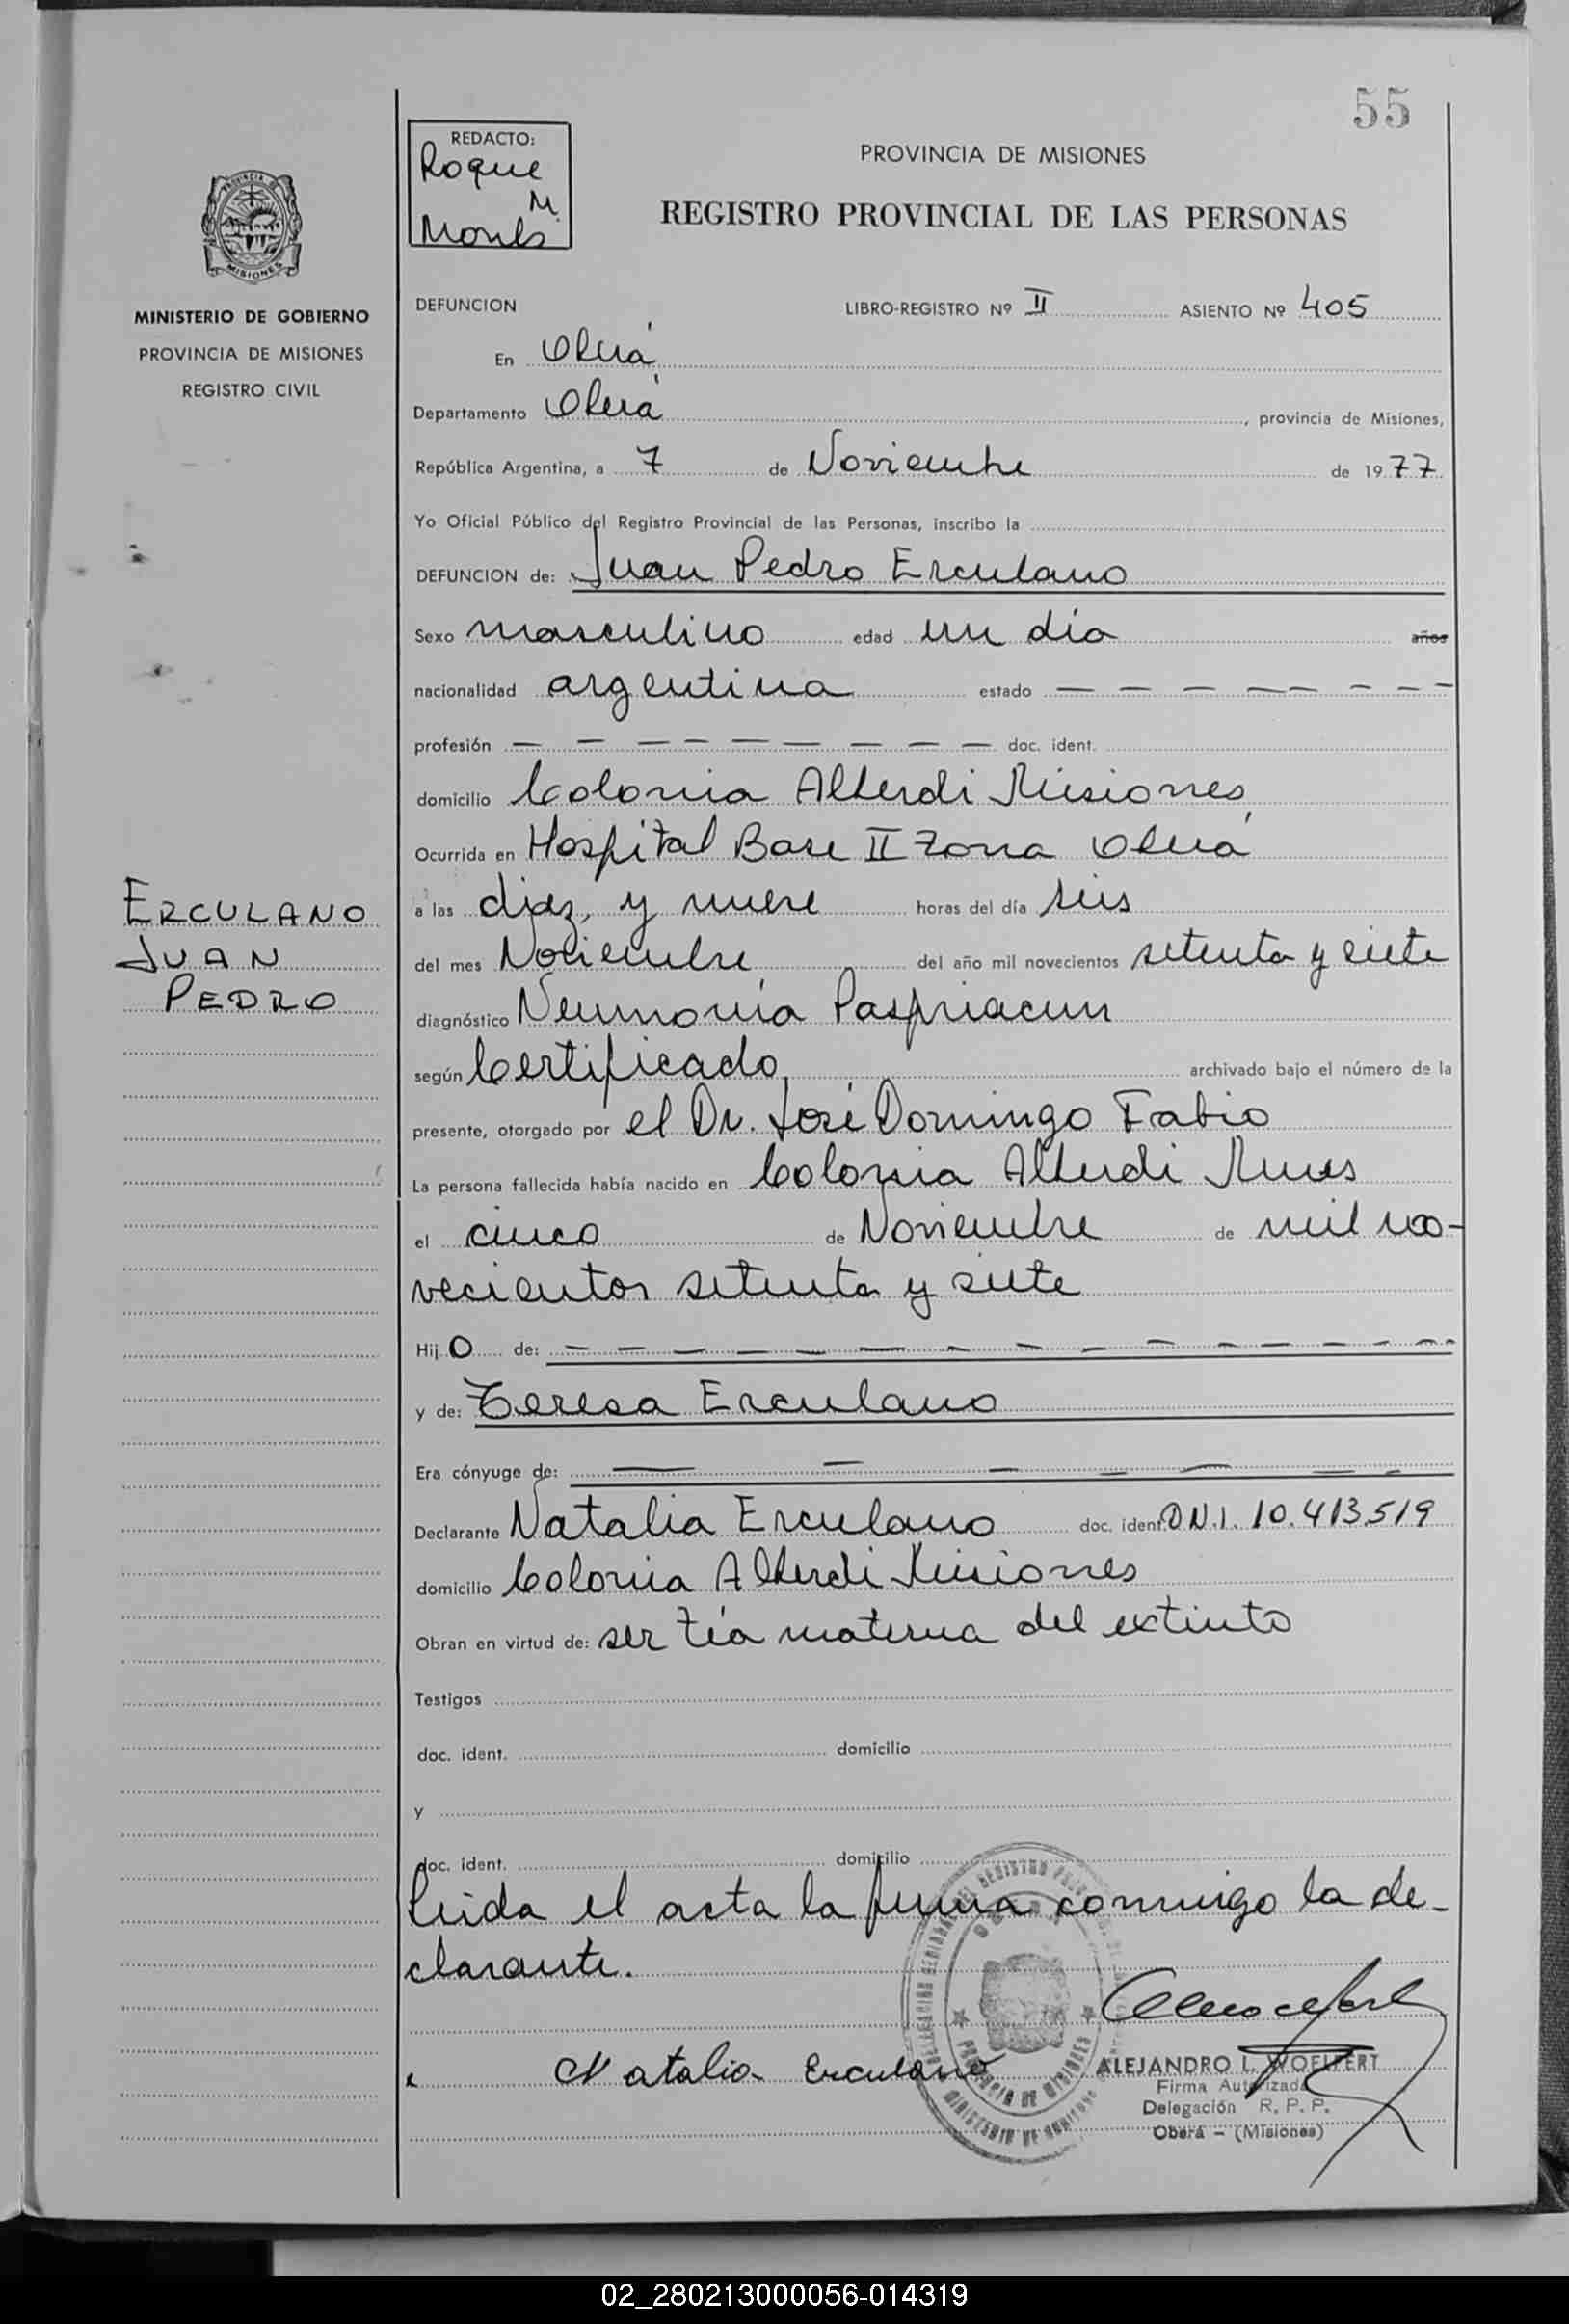 55
REDACTO:
Roque
M.
PROVINCIA DE MISIONES
REGISTRO PROVINCIAL DE LAS PERSONAS
PROVINCIA DE
MISIONES
MINISTERIO DE GOBIERNO
PROVINCIA DE MISIONES
REGISTRO CIVIL
DEFUNCION LIBRO-REGISTRO Nº II ASIENTO Nº 405
En Oberá
Departamento Oberá, provincia de Misiones,
República Argentina, a 7 de Noviembre de 1977
Yo Oficial Público del Registro Provincial de las Personas, inscribo la
DEFUNCION de: Juan Pedro Erculano
Sexo masculino edad un día años
nacionalidad argentina estado — — — — — — — —
profesión — — — — — — — — — doc. ident.
domicilio Colonia Alberdi Misiones
Ocurrida en Hospital Base II Zona Oberá
ERCULANO
JUAN
PEDRO
a las diez y nueve horas del día seis
del mes Noviembre del año mil novecientos setenta y siete
diagnóstico Neumonía
según Certificado archivado bajo el número de la
presente, otorgado por el Dr. José Domingo Fabio
La persona fallecida había nacido en Colonia Alberdi Mnes
el cinco de Noviembre de mil no-
vecientos setenta y siete
Hijo de: — — — — — — — — — — — —
y de: Teresa Erculano
Era cónyuge de: — — — — — — —
Declarante Natalia Erculano doc. ident. D.N.I. 10.413.519
domicilio Colonia Alberdi Misiones
Obran en virtud de: ser tía materna del extinto
Testigos
doc. ident. domicilio
y
doc. ident. domicilio
Leida el acta la firma conmigo la de-
clarante.
Natalia Erculano
ALEJANDRO L. WOELFERT
Firma Autorizada
Delegación R. P. P.
Oberá - (Misiones)
PROVINCIA DE MISIONES
MINISTERIO DE GOBIERNO
02_280213000056-014319